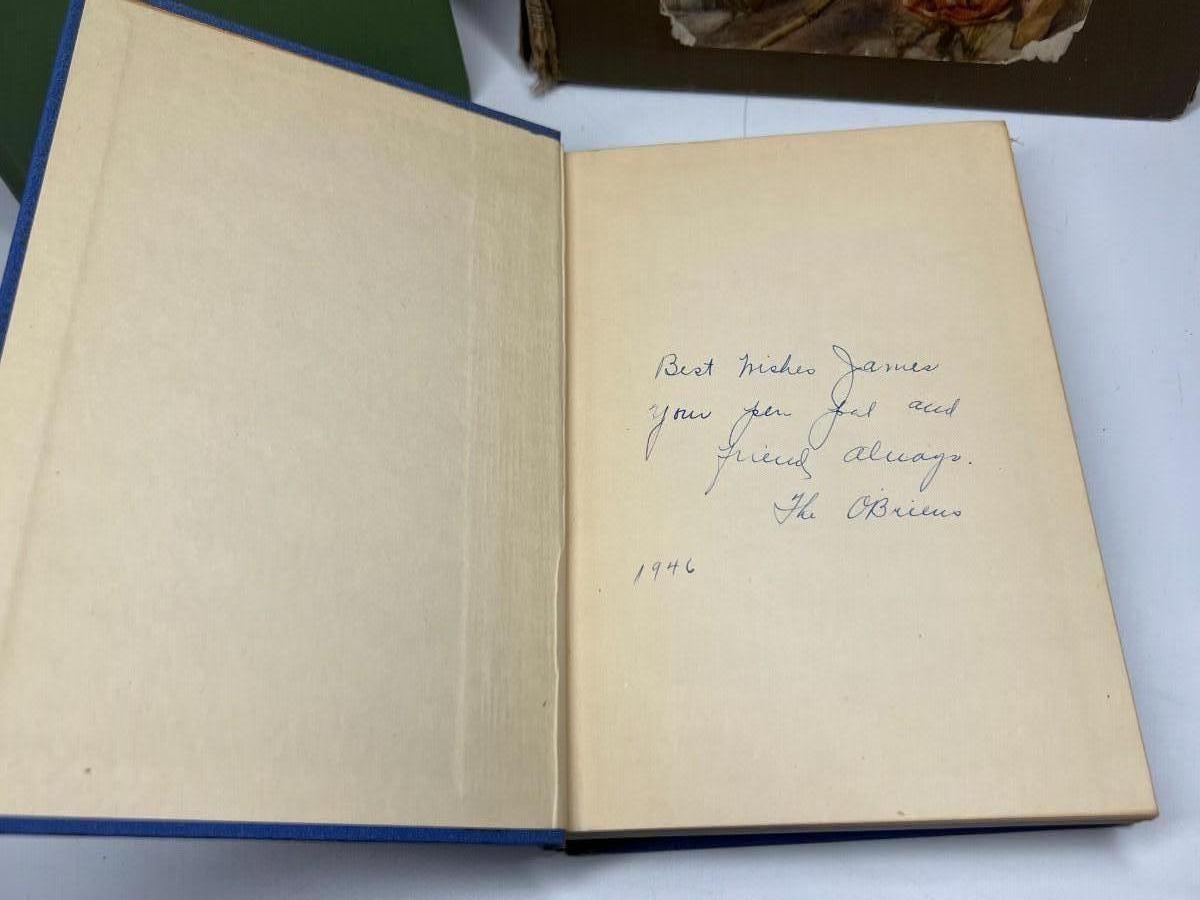 Best Wishes James
Your pen pal and
friend always.
The O'Briens
1946